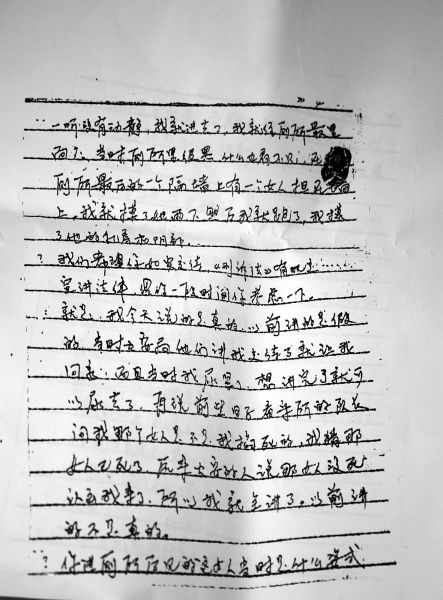 一听没有动静，我就进去了，我就往厕所最里
面走，当时厕所里很黑，什么也看不见，在
厕所最后的一个隔墙上有一个女人担在
上，我就摸了她两下然后我就跑了，我摸
了她的乳房和阴部。
？我们希望你如实交待，《刑诉法》有规定……
宣讲法律，思给一段时间你考虑一下。
：就是，我今天说的是真的，以前讲的是假
的，当时去公安局他们讲我交待了就让我
回来，而且当时我尿急，想讲完了就可
以尿去了，再说前些日子看守所的队长
问我那个女人是不是我掐死的，我猜那
女人死了，后来公安的人说那女人没死
认出我来了，所以我就全讲了。以前讲
的不是真的。
？你进厕所后见的这女人当时是什么姿式